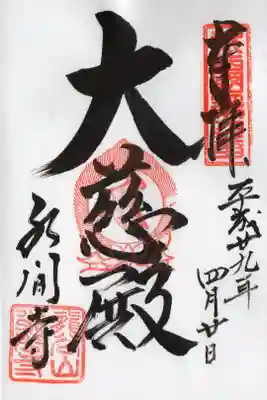 奉拝
平成廿九年
四月廿日
大慈殿
永閒寺